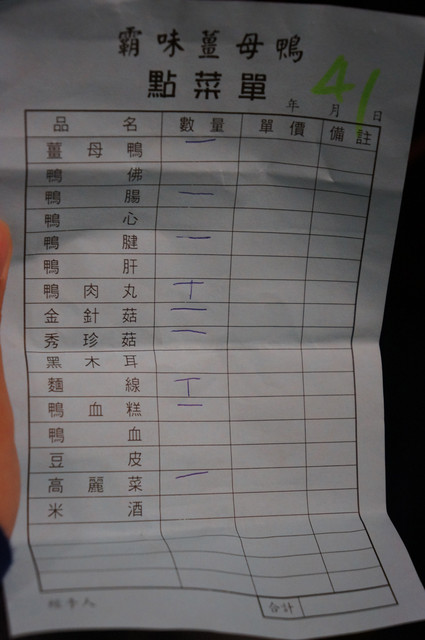 霸味薑母鴨
點菜單
41
年 月 日
品名 數量 單價 備註
薑母鴨 一
鴨佛
鴨腸 一
鴨心
鴨腱 一
鴨肝
鴨肉丸 丅
金針菇 一
秀珍菇 一
黑木耳
麵線 丅
鴨血糕 一
鴨血
豆皮
高麗菜 一
米酒
經手人
合計